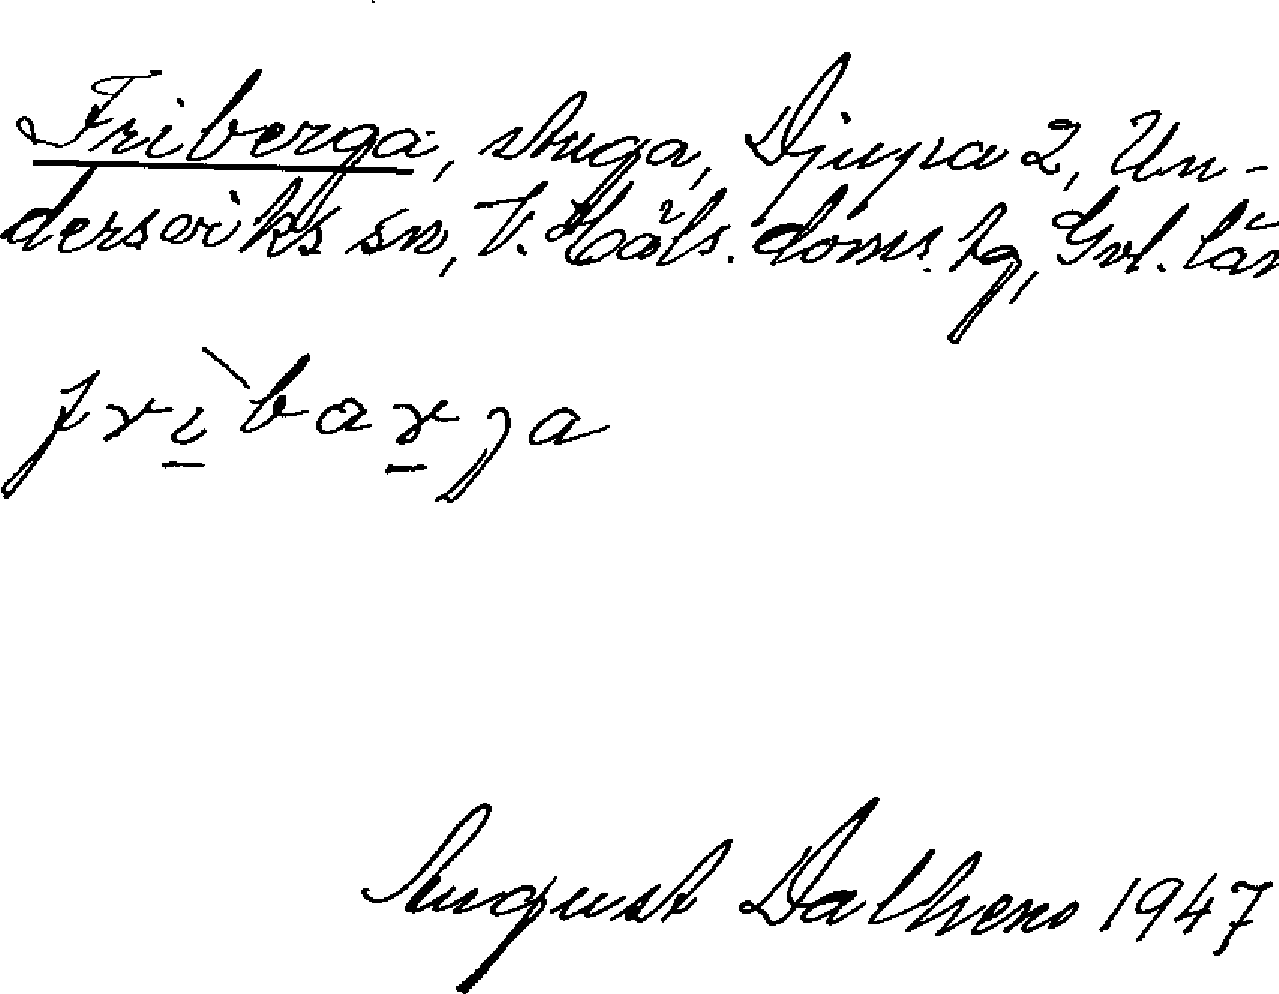 Friberga, stuga, Djupa 2, Un-
dersviks sn, V. Häls. doms. hg, Gvl. län
fri`barga
August Dalhem 1947